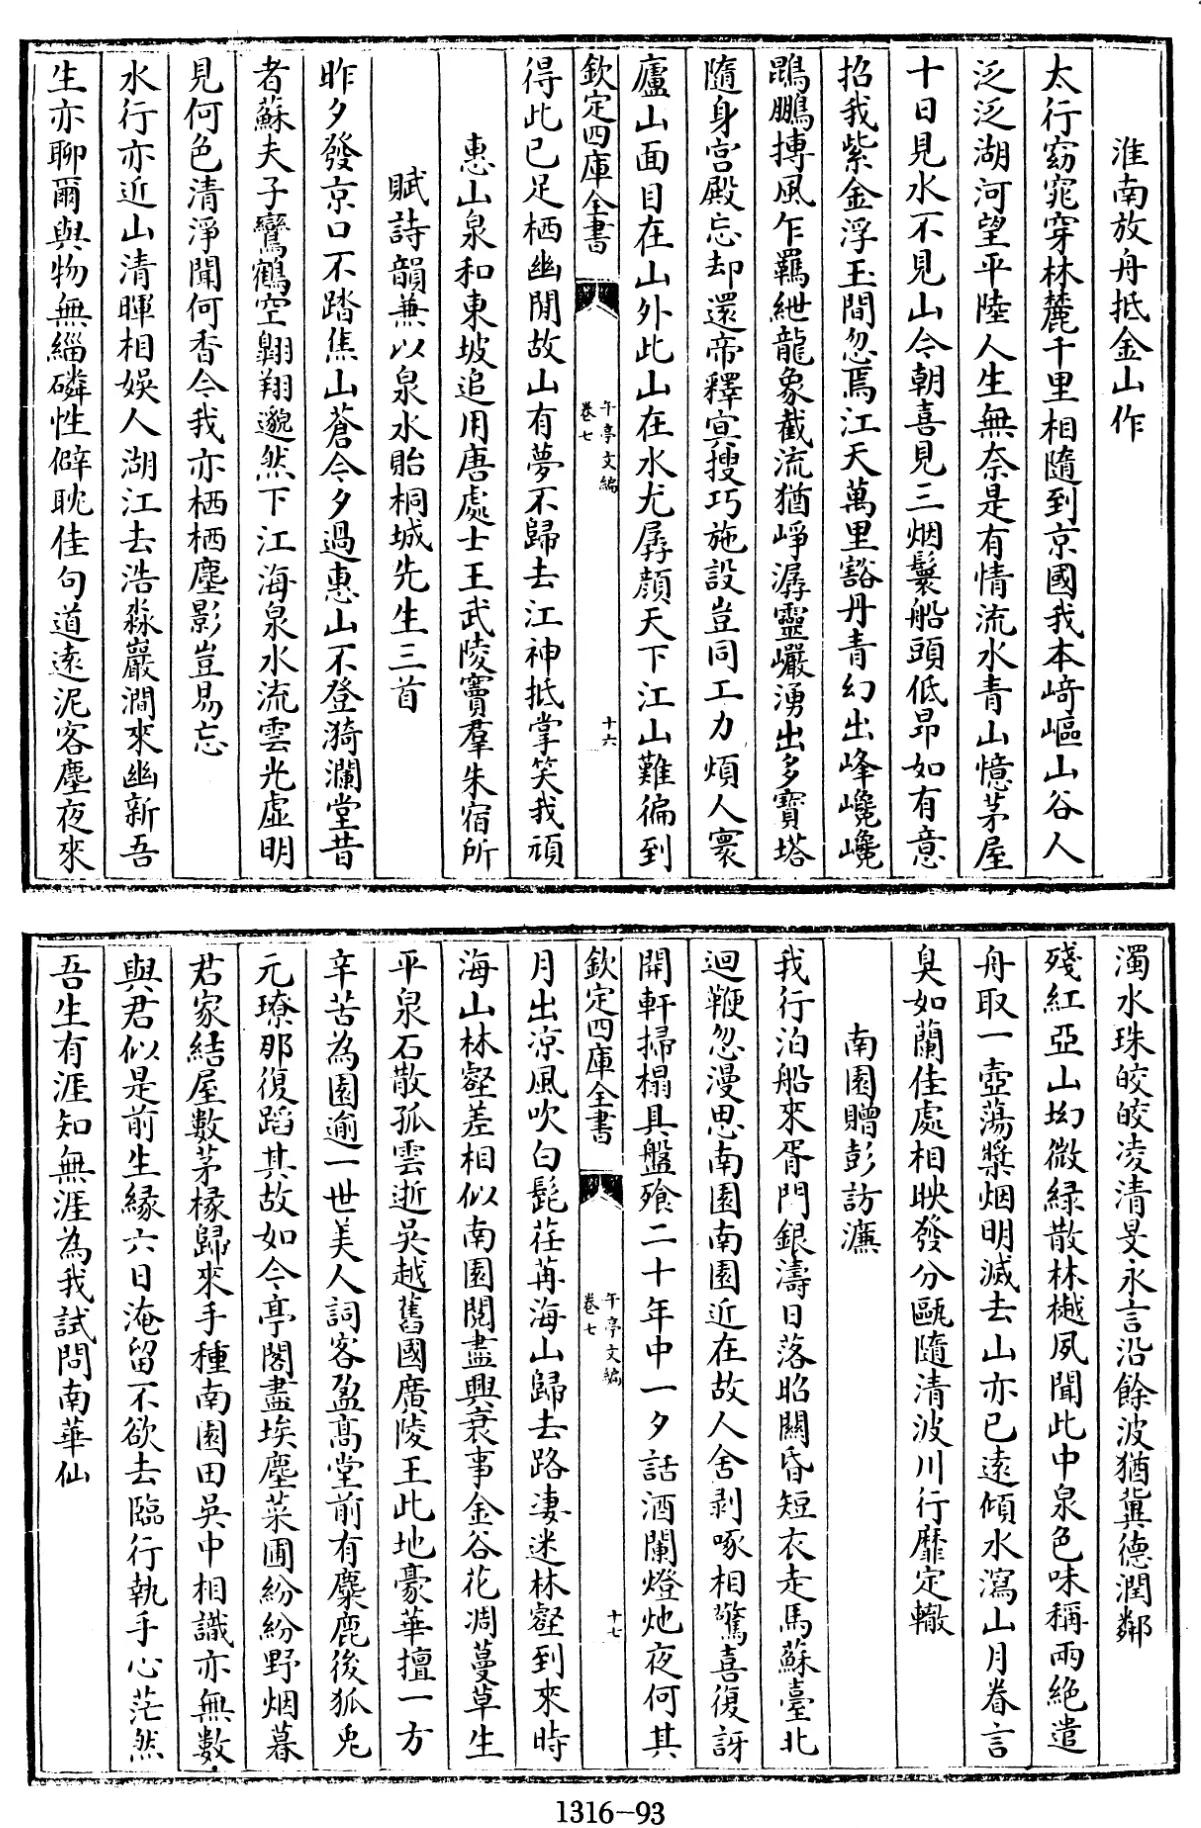 淮南放舟抵金山作
太行窈窕穿林麓千里相隨到京國我本崎嶇山谷人
泛泛湖河望平陸人生無奈是有情流水青山憶茅屋
十日見水不見山今朝喜見三烟鬟船頭低昂如有意
招我紫金浮玉間忽焉江天萬里豁丹青幻出峰巉巉
鵾鵬摶風乍羈紲龍象截流猶崢潺靈巘湧出多寶塔
隨身宮殿忘却還帝釋冥搜巧施設豈同工力煩人寰
廬山面目在山外此山在水尤孱顏天下江山難徧到
欽定四庫全書
午亭文編
卷七
十六
得此已足栖幽閒故山有夢不歸去江神抵掌笑我頑
惠山泉和東坡追用唐處士王武陵竇羣朱宿所
賦詩韻兼以泉水貽桐城先生三首
昨夕發京口不踏焦山蒼今夕過惠山不登猗瀾堂昔
者蘇夫子鸞鶴空翺翔邈然下江海泉水流雲光虛明
見何色清淨聞何香今我亦栖栖塵影豈易忘
水行亦近山清暉相娛人湖江去浩淼巖澗來幽新吾
生亦聊爾與物無緇磷性僻耽佳句道遠泥客塵夜來
濁水珠皎皎凌清旻永言沿餘波猶冀德潤鄰
殘紅亞山坳微綠散林樾夙聞此中泉色味稱兩絶遣
舟取一壺蕩槳烟明滅去山亦已遠傾水瀉山月眷言
臭如蘭佳處相映發分甌隨清波川行靡定轍
南園贈彭訪濂
我行泊船來胥門銀濤日落昭關昏短衣走馬蘇臺北
迴鞭忽漫思南園南園近在故人舍剥啄相驚喜復訝
開軒掃榻具盤飧二十年中一夕話酒闌燈灺夜何其
欽定四庫全書
午亭文編
卷七
十七
月出涼風吹白髭荏苒海山歸去路凄迷林壑到來時
海山林壑差相似南園閱盡興衰事金谷花凋蔓草生
平泉石散孤雲逝吳越舊國廣陵王此地豪華擅一方
辛苦為園逾一世美人詞客盈高堂前有麋鹿後狐兎
元璙那復蹈其故如今亭閣盡埃塵菜圃紛紛野烟暮
君家結屋數茅椽歸來手種南園田吳中相識亦無數
與君似是前生緣六日淹留不欲去臨行執手心茫然
吾生有涯知無涯為我試問南華仙
1316-93